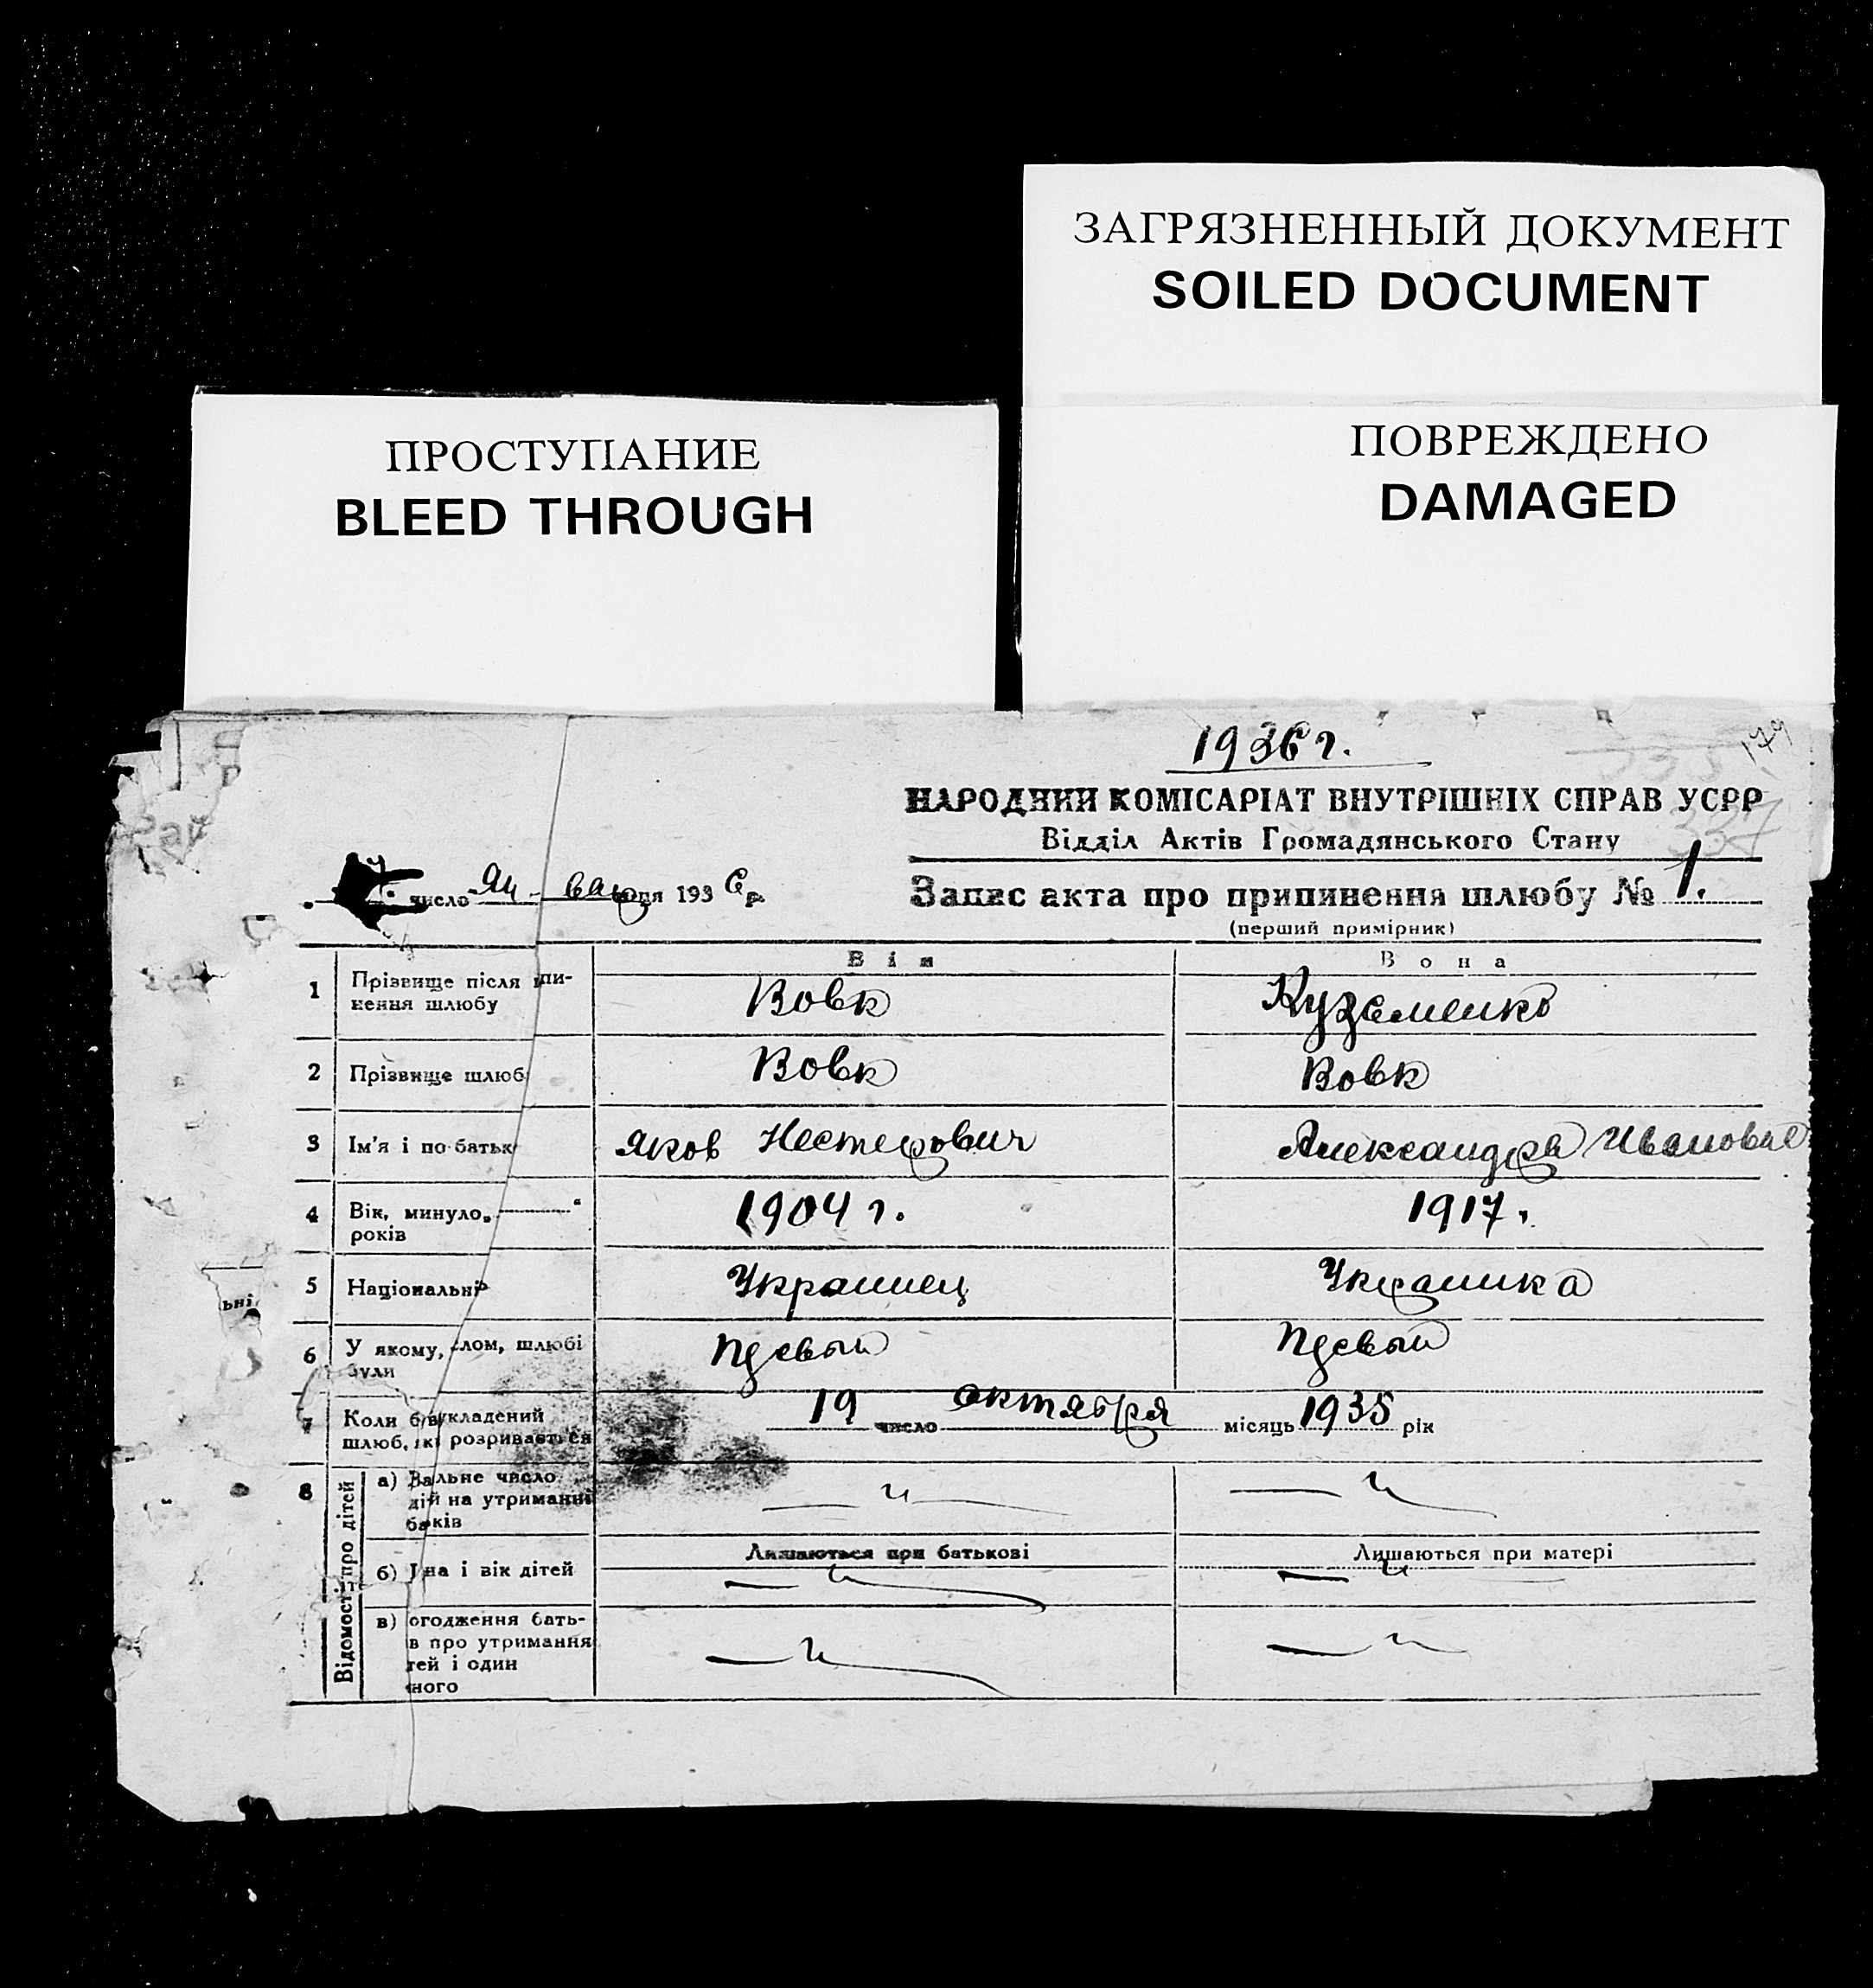 ЗАГРЯЗНЕННЫЙ ДОКУМЕНТ
SOILED DOCUMENT
ПРОСТУПАНИЕ
BLEED THROUGH
ПОВРЕЖДЕНО
DAMAGED
1936 г.
179
337
НАРОДНИЙ КОМІСАРІАТ ВНУТРІШНІХ СПРАВ УСРР
Відділ Актів Громадянського Стану
число 193 6 р.
Запис акта про припинення шлюбу № 1.
(перший примірник)
Він Вона
1 Прізвище після пи-
нення шлюбу
Вовк Куземенко
2 Прізвище шлюб Вовк Вовк
3 Ім'я і по батьк Яков Нестерович Александра Ивановна
4 Вік, минуло „ “
років
1904 г. 1917.
5 Національні Украинец Украинка
6 У якому, слом, шлюбі
були
Первый Первый
7 Коли був укладений
шлюб, які розривається
19 число октября місяць 1935 рік
8 Відомості про дітей
а) Зальне число
дій на утриманні
баків
— и — — и —
Лишаються при батькові Лишаються при матері
б) Іна і вік дітей — и — — и —
в) огодження бать-
в про утримання
тей і один
ного
— и — — и —
ьні